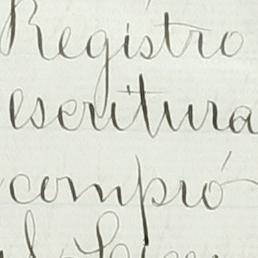 Registro
escritura
compró